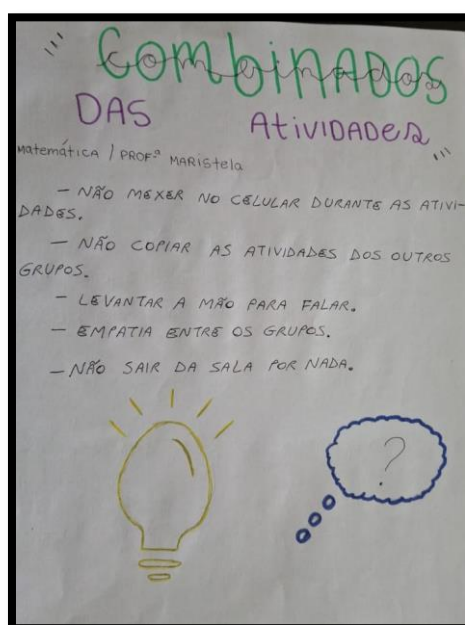 COMBINADOS
DAS ATIVIDADES
Matemática / PROFª MARISTELA
- NÃO MEXER NO CELULAR DURANTE AS ATIVI-
DADES.
- NÃO COPIAR AS ATIVIDADES DOS OUTROS
GRUPOS.
- LEVANTAR A MÃO PARA FALAR.
- EMPATIA ENTRE OS GRUPOS.
- NÃO SAIR DA SALA POR NADA.
?